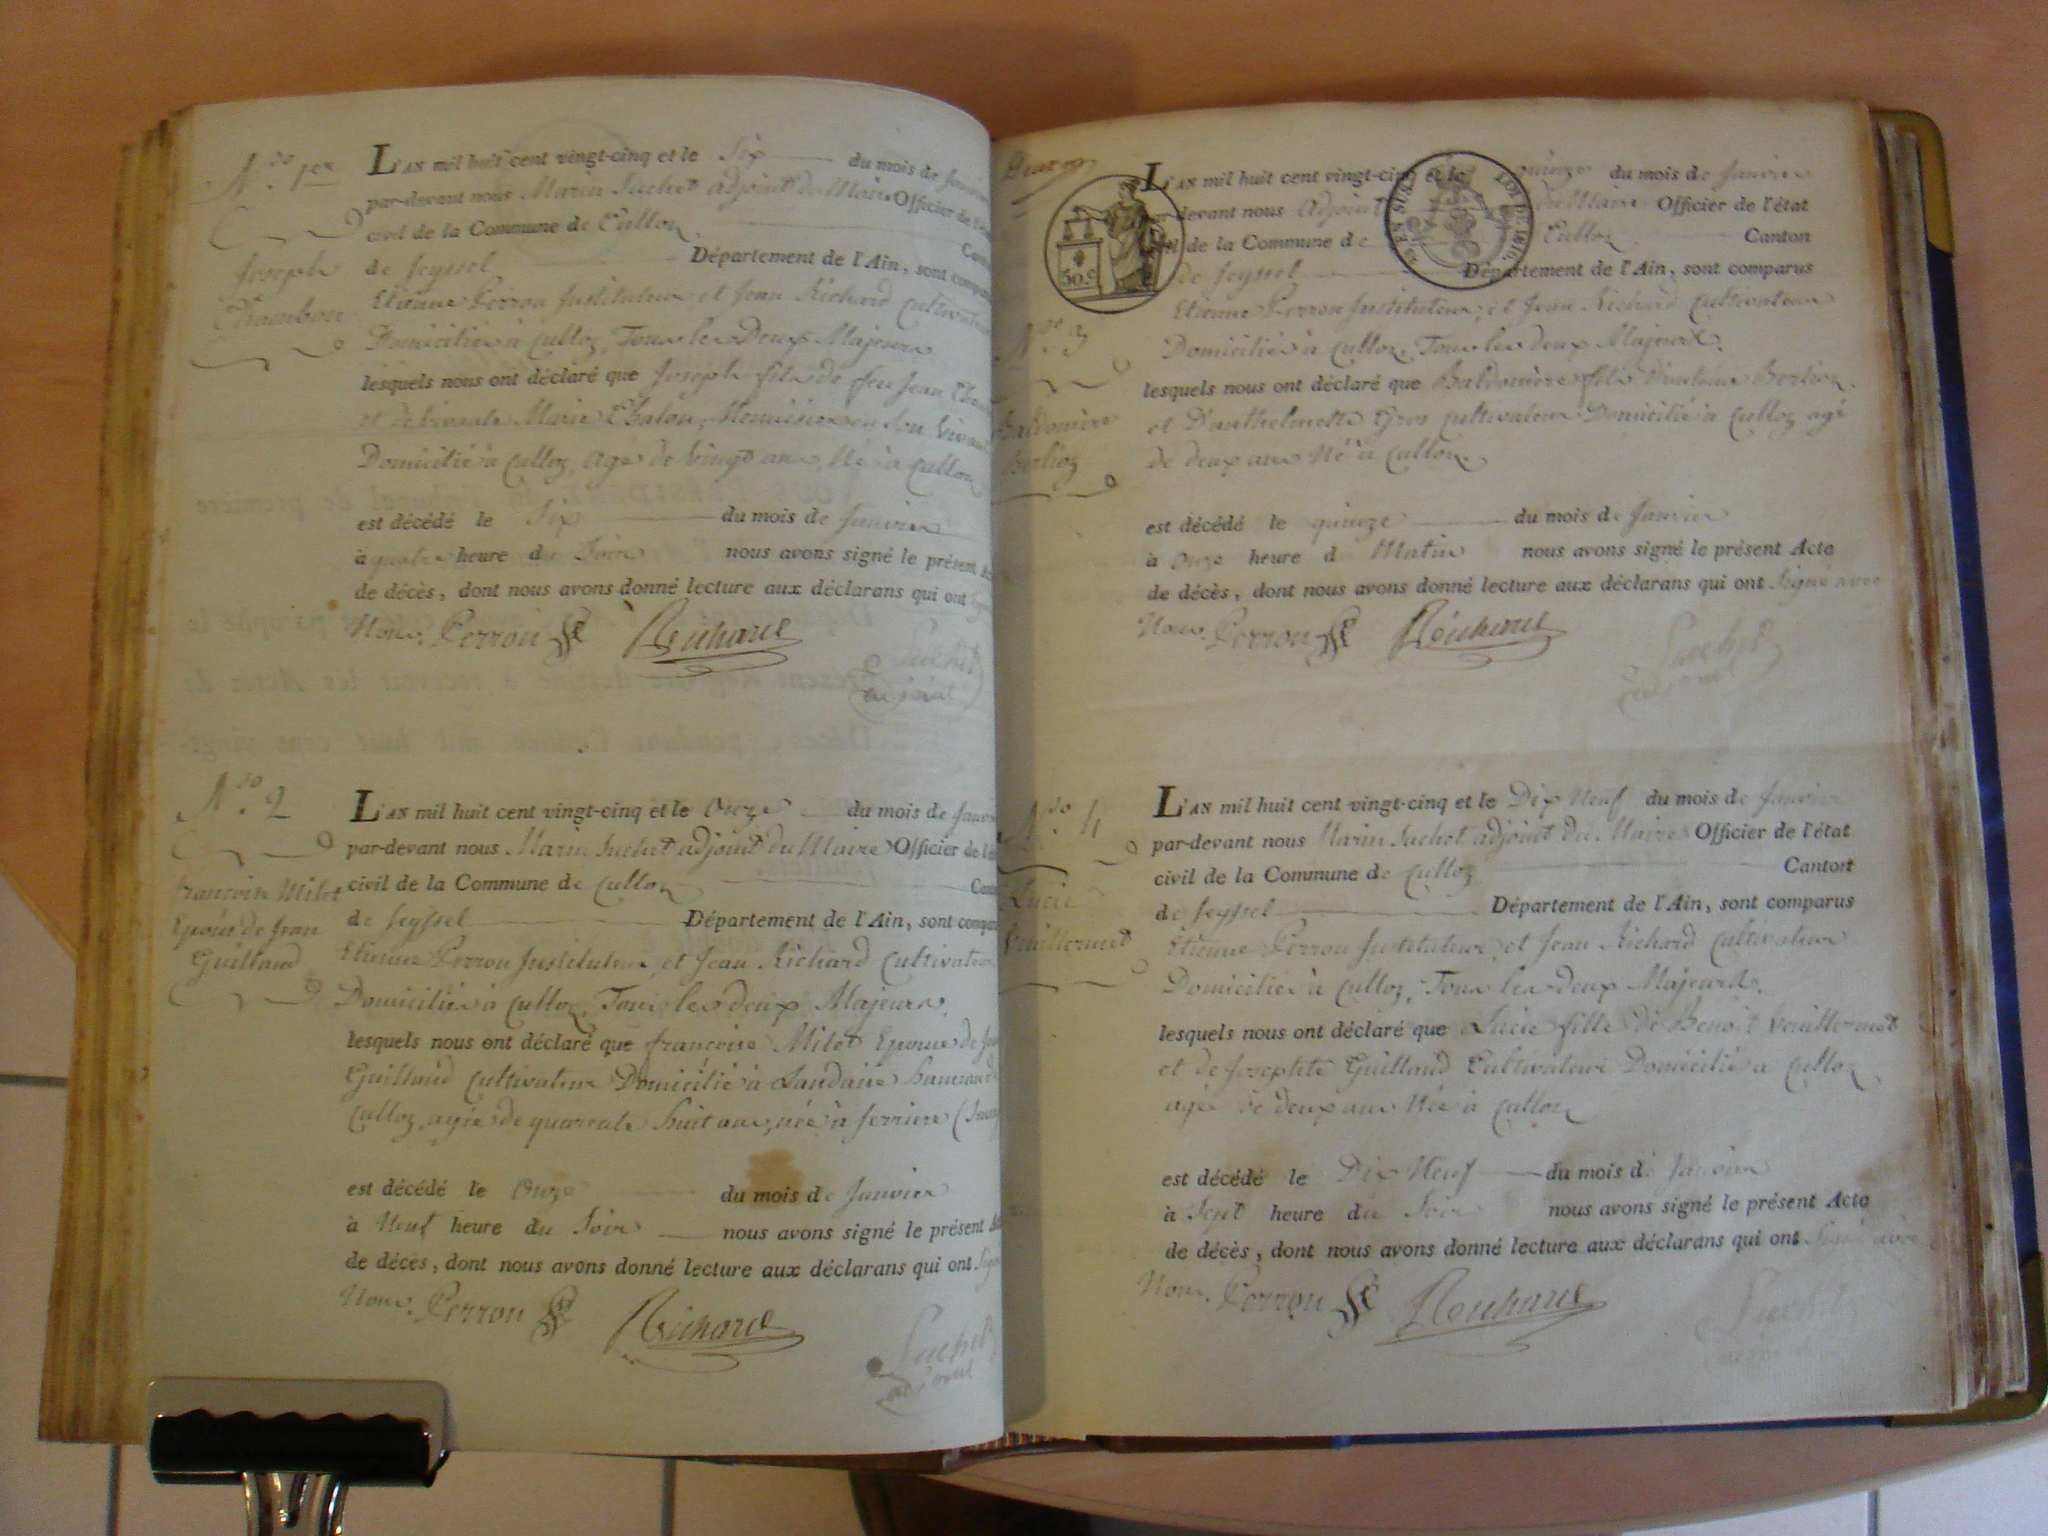 N.ro 1er
Joseph
Chambon
L'AN mil huit cent vingt-cinq et le Six du mois de Janvier
par-devant nous Marin Suchet adjoint du Maire Officier de l'état
civil de la Commune de Culloz
de Seyssel Département de l'Ain, sont comparus
Etienne Perron Instituteur, et Jean Richard Cultivateur
Domiciliés à Culloz, Tous les Deux Majeurs
lesquels nous ont déclaré que Joseph fils de feu Jean
et de vivante Marie Chalon, Menuisier en son vivant
Domicilié à Culloz, agé de vingt ans, Né à Culloz
est décédé le Six du mois de Janvier
à quatre heure du Soir nous avons signé le présent
de décès, dont nous avons donné lecture aux déclarans qui ont
Nous. Perron Richard
Suchet
adjoint
N.ro 2
francoise Milet
Epouse de Jean
Guilland
L'AN mil huit cent vingt-cinq et le Onze du mois de Janvier
par-devant nous Marin Suchet adjoint du Maire Officier de
civil de la Commune de Culloz
de Seyssel Département de l'Ain, sont
Etienne Perron Instituteur, et Jean Richard Cultivateur
Domiciliés à Culloz, Tous les deux Majeurs,
lesquels nous ont déclaré que francoise Milet Epouse de
Guilland Cultivateur Domicilié à Landaise hameau de
Culloz, agée de quarante huit ans, née à Serriere
est décédé le Onze du mois de Janvier
à Neuf heure du Soir nous avons signé le présent
de décès, dont nous avons donné lecture aux déclarans qui ont
Nous. Perron Richard
Suchet
adjoint
50.c
N.ro 3
Baldomère
Berlioz
L'AN mil huit cent vingt-cinq et le quinze du mois de Janvier
par-devant nous Adjoint du Maire Officier de l'état
civil de la Commune de Culloz Canton
de Seyssel Département de l'Ain, sont comparus
Etienne Perron Instituteur, et Jean Richard Cultivateur
Domiciliés à Culloz, Tous les deux Majeurs.
lesquels nous ont déclaré que Baldomère fils d'Antoine Berlioz.
et D'anthelmette Gros Cultivateur Domicilié à Culloz agé
de deux ans Né à Culloz.
est décédé le quinze du mois de Janvier
à Onze heure d Matin nous avons signé le présent Acte
de décès, dont nous avons donné lecture aux déclarans qui ont Signé avec
Nous. Perron Richard
Suchet
adjoint
N.ro 4
Lucie
Vuillermet
L'AN mil huit cent vingt-cinq et le Dix Neuf du mois de Janvier
par-devant nous Marin Suchet adjoint du Maire Officier de l'état
civil de la Commune de Culloz Canton
de Seyssel Département de l'Ain, sont comparus
Etienne Perron Instituteur, et Jean Richard Cultivateur
Domiciliés à Culloz, Tous les deux Majeurs.
lesquels nous ont déclaré que Lucie fille de Benoit Vuillermet
et de Josephte Guilland Cultivateur Domicilié à Culloz
agée de deux ans Née à Culloz
est décédé le Dix Neuf du mois de Janvier
à Sept heure du Soir nous avons signé le présent Acte
de décès, dont nous avons donné lecture aux déclarans qui ont Signé avec
Nous. Perron Richard
Suchet